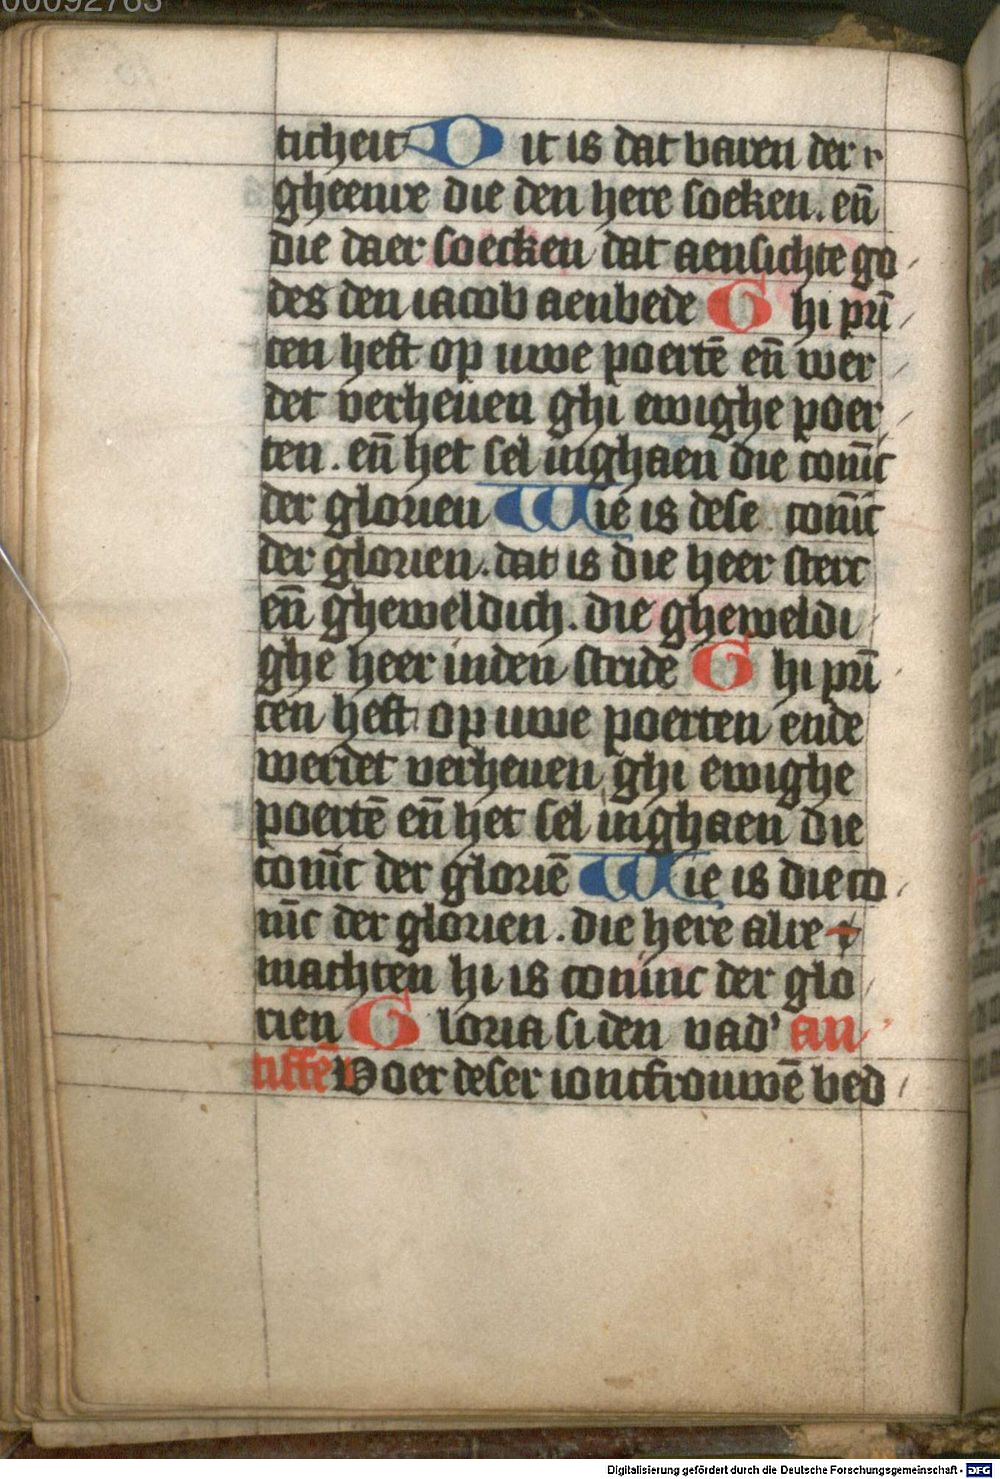 00092763
ticheit Dit is dat varen der r
gheenre die den here soeken. eñ
die daer soecken dat aensichte go
des den iacob aenbede Ghi prī
cen heft op uwe poertē eñ wer
det verheuen ghi ewighe poer
ten. eñ het sel inghaen die conīc
der glorien Wie is dese conīc
der glorien. dat is die heer sterc
eñ gheweldich. die gheweldi
ghe heer inden stride Ghi prī
cen heft op uwe poerten ende
werdet verheuen ghi ewighe
poertē eñ het sel inghaen die
conīc der gloriē Wie is die co
nīc der glorien. die here alre
machten hi is coninc der glo
rien Gloria si den vad' an
tiffē Voer deser ioncfrouwē bed
Digitalisierung gefördert durch die Deutsche Forschungsgemeinschaft - DFG